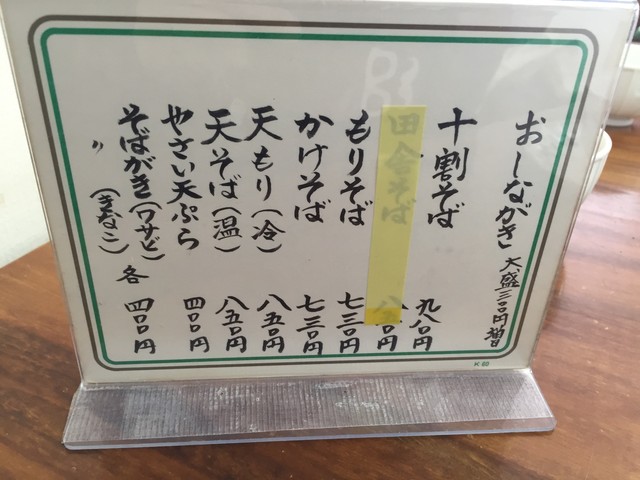 おしながき 大盛三〇〇円増
十割そば 九八〇円
田舎そば 八 〇円
もりそば 七三〇円
かけそば 七三〇円
天もり(冷) 八五〇円
天そば(温) 八五〇円
やさい天ぷら 四〇〇円
そばがき(ワサビ)
〃 (きなこ) 各 四〇〇円